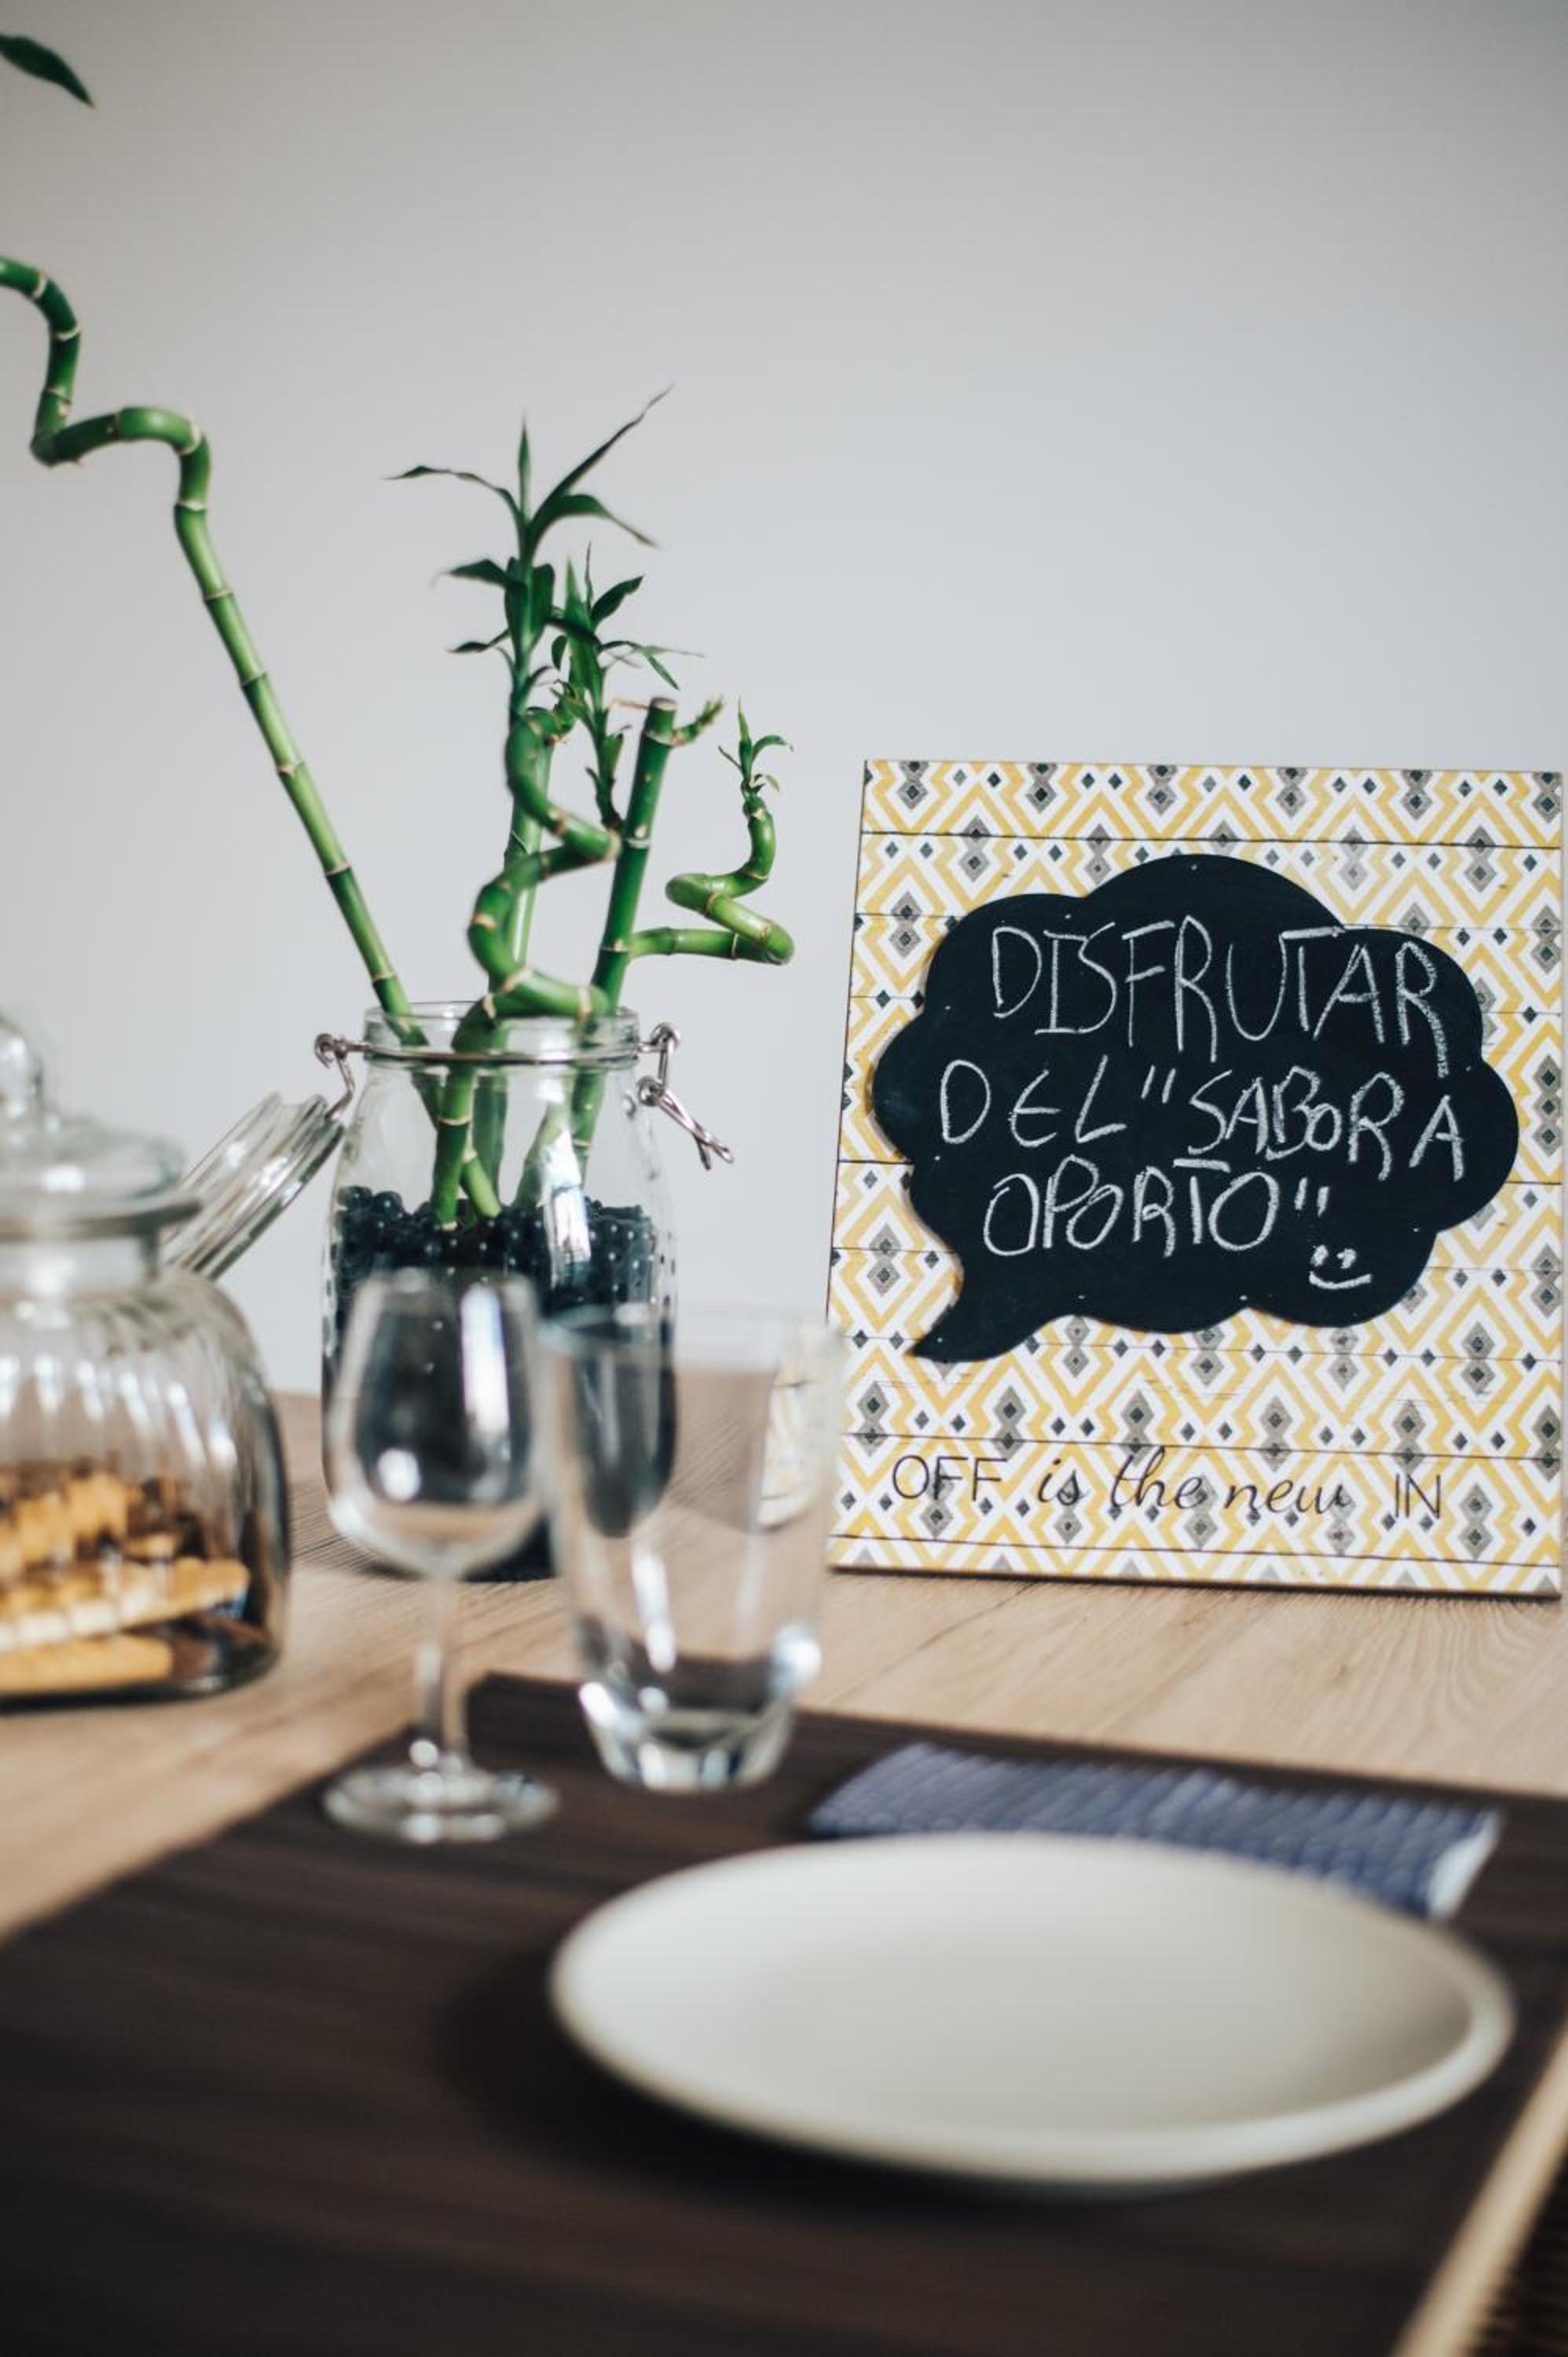 DISFRUTAR
DEL "SABOR A
OPORTO"
OFF is the new IN